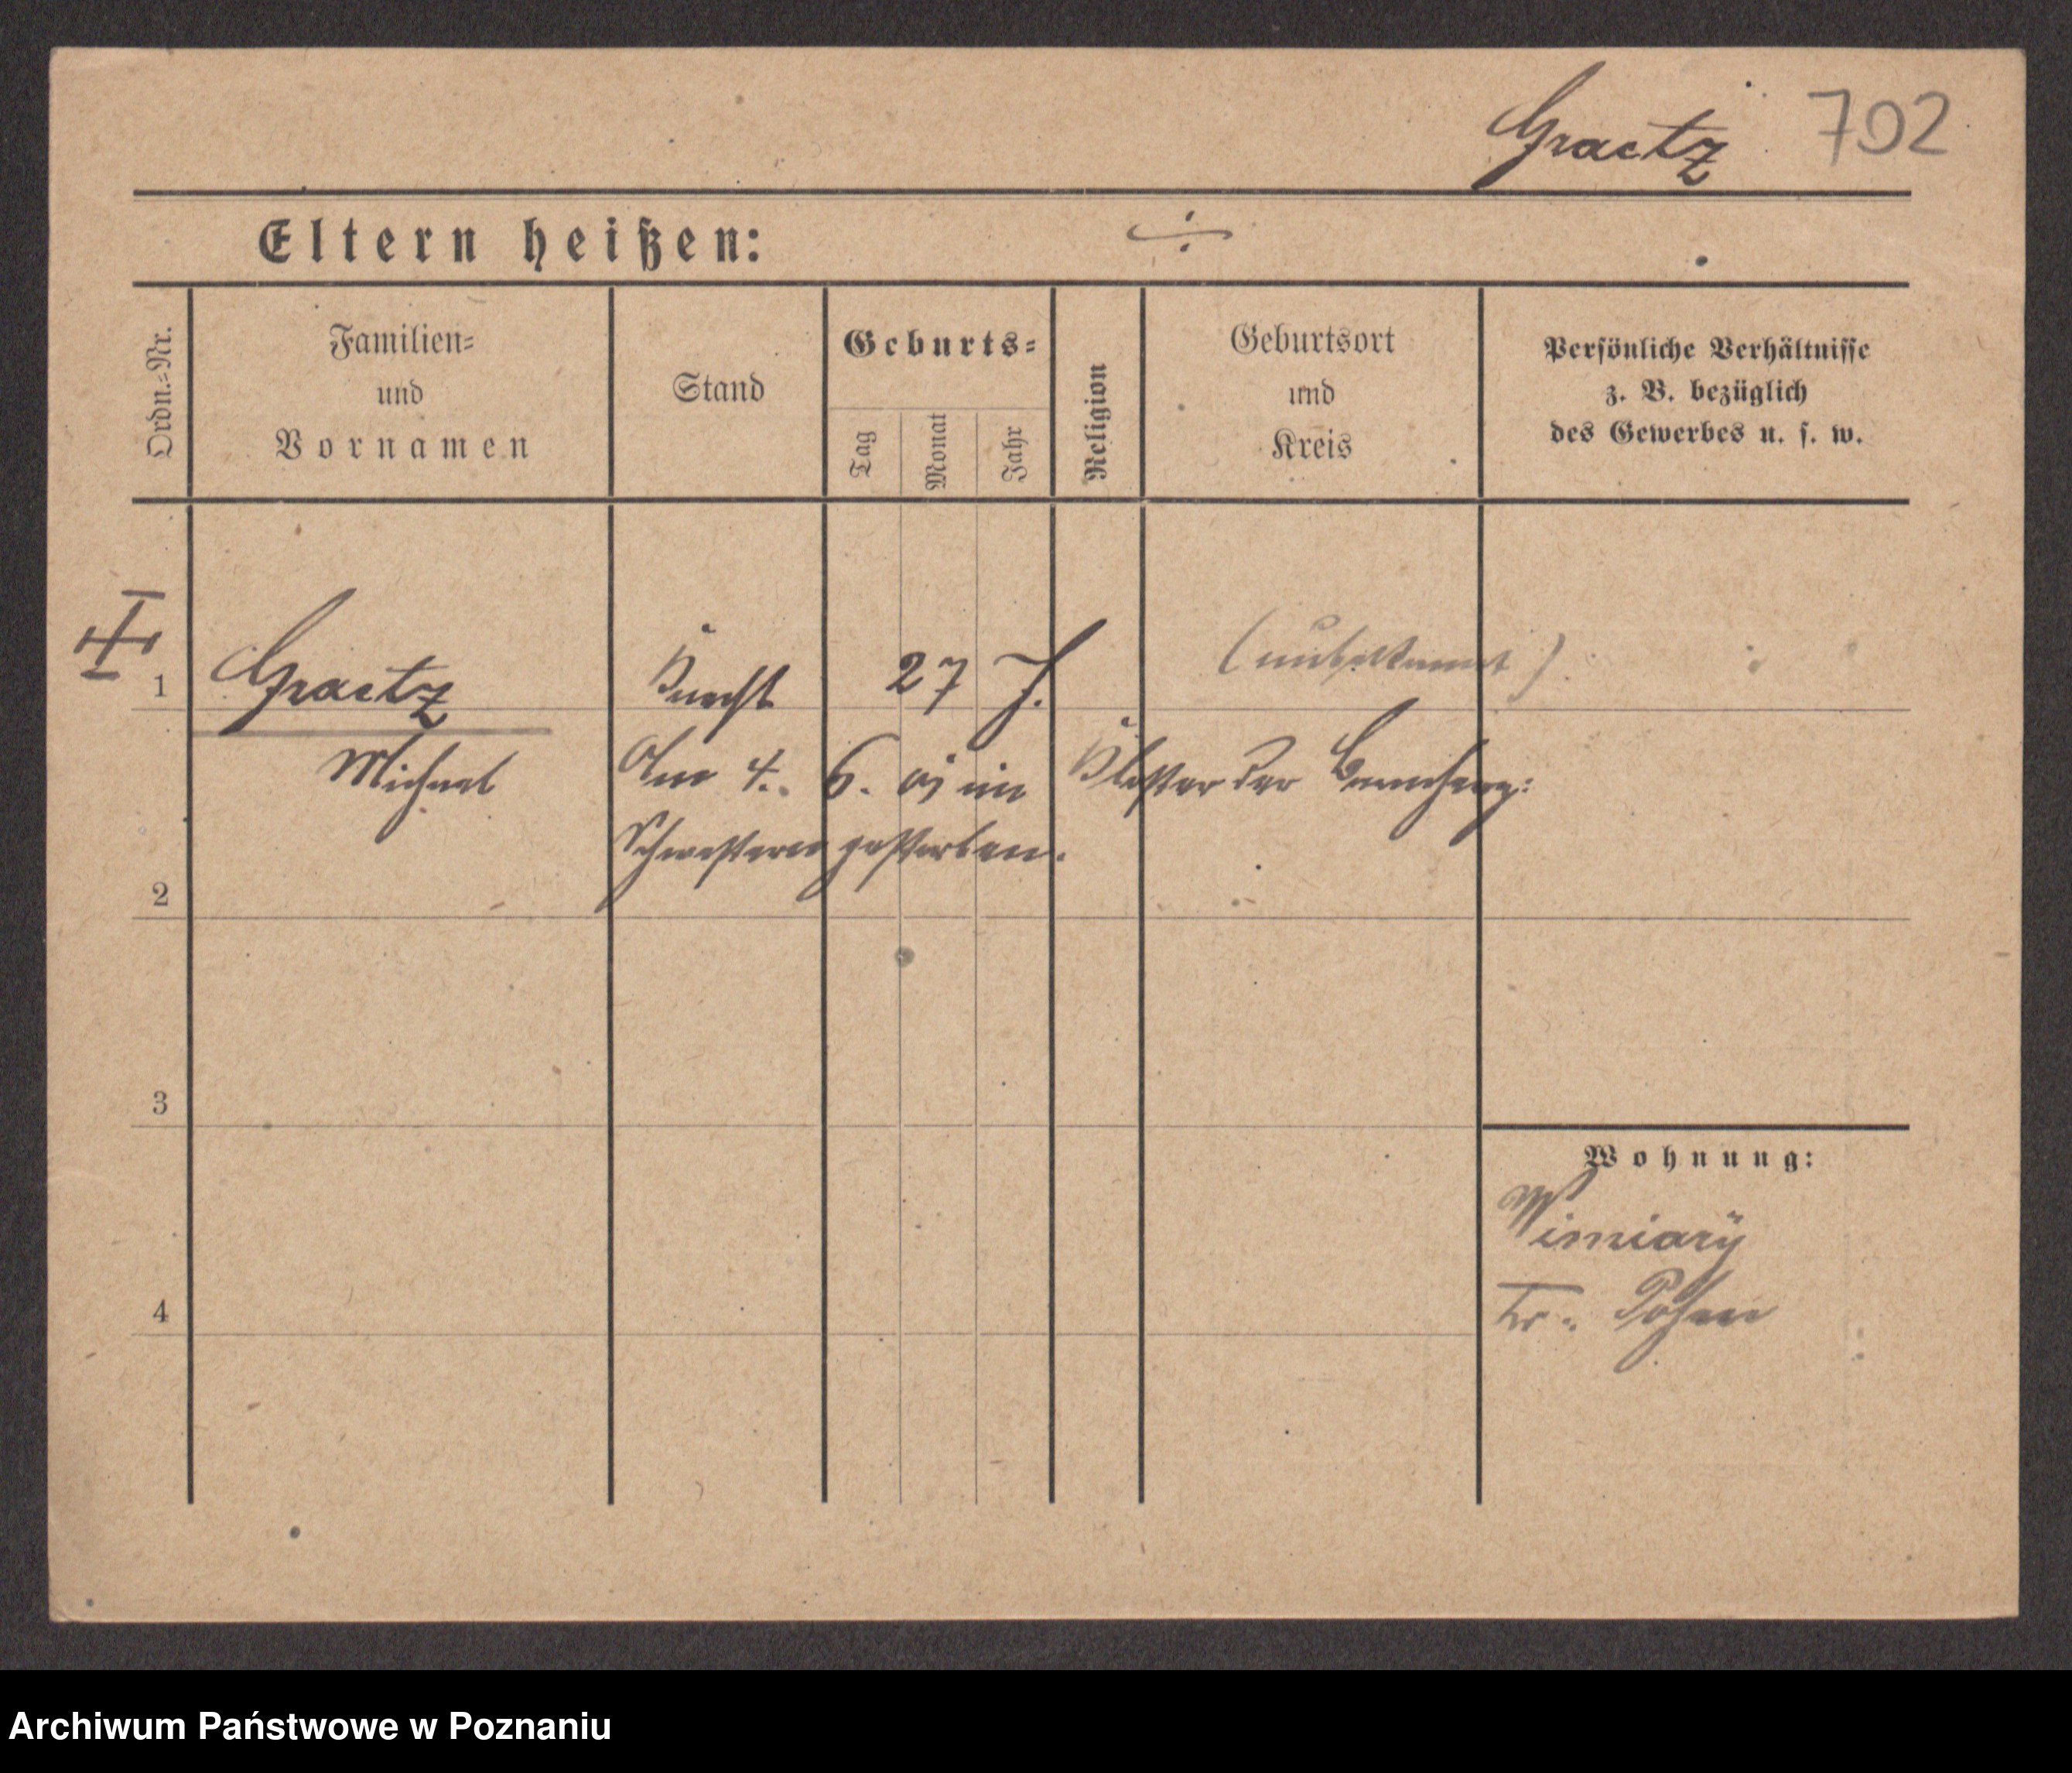 Graetz 702
Eltern heißen: ÷
Ordn.=Nr.
Familien=
und
Vornamen
Stand
Geburts=
Tag Monat Jahr
Religion
Geburtsort
und
Kreis
Persönliche Verhältnisse
z. B. bezüglich
des Gewerbes u. s. w.
1 Graetz Knecht 27 J. (unbekannt).
Michael Am 4. 6. 05 im Kloster der Barmherz:
2 Schwestern gestorben.
3
Wohnung:
Winiary
4 Kr. Posen
Archiwum Państwowe w Poznaniu